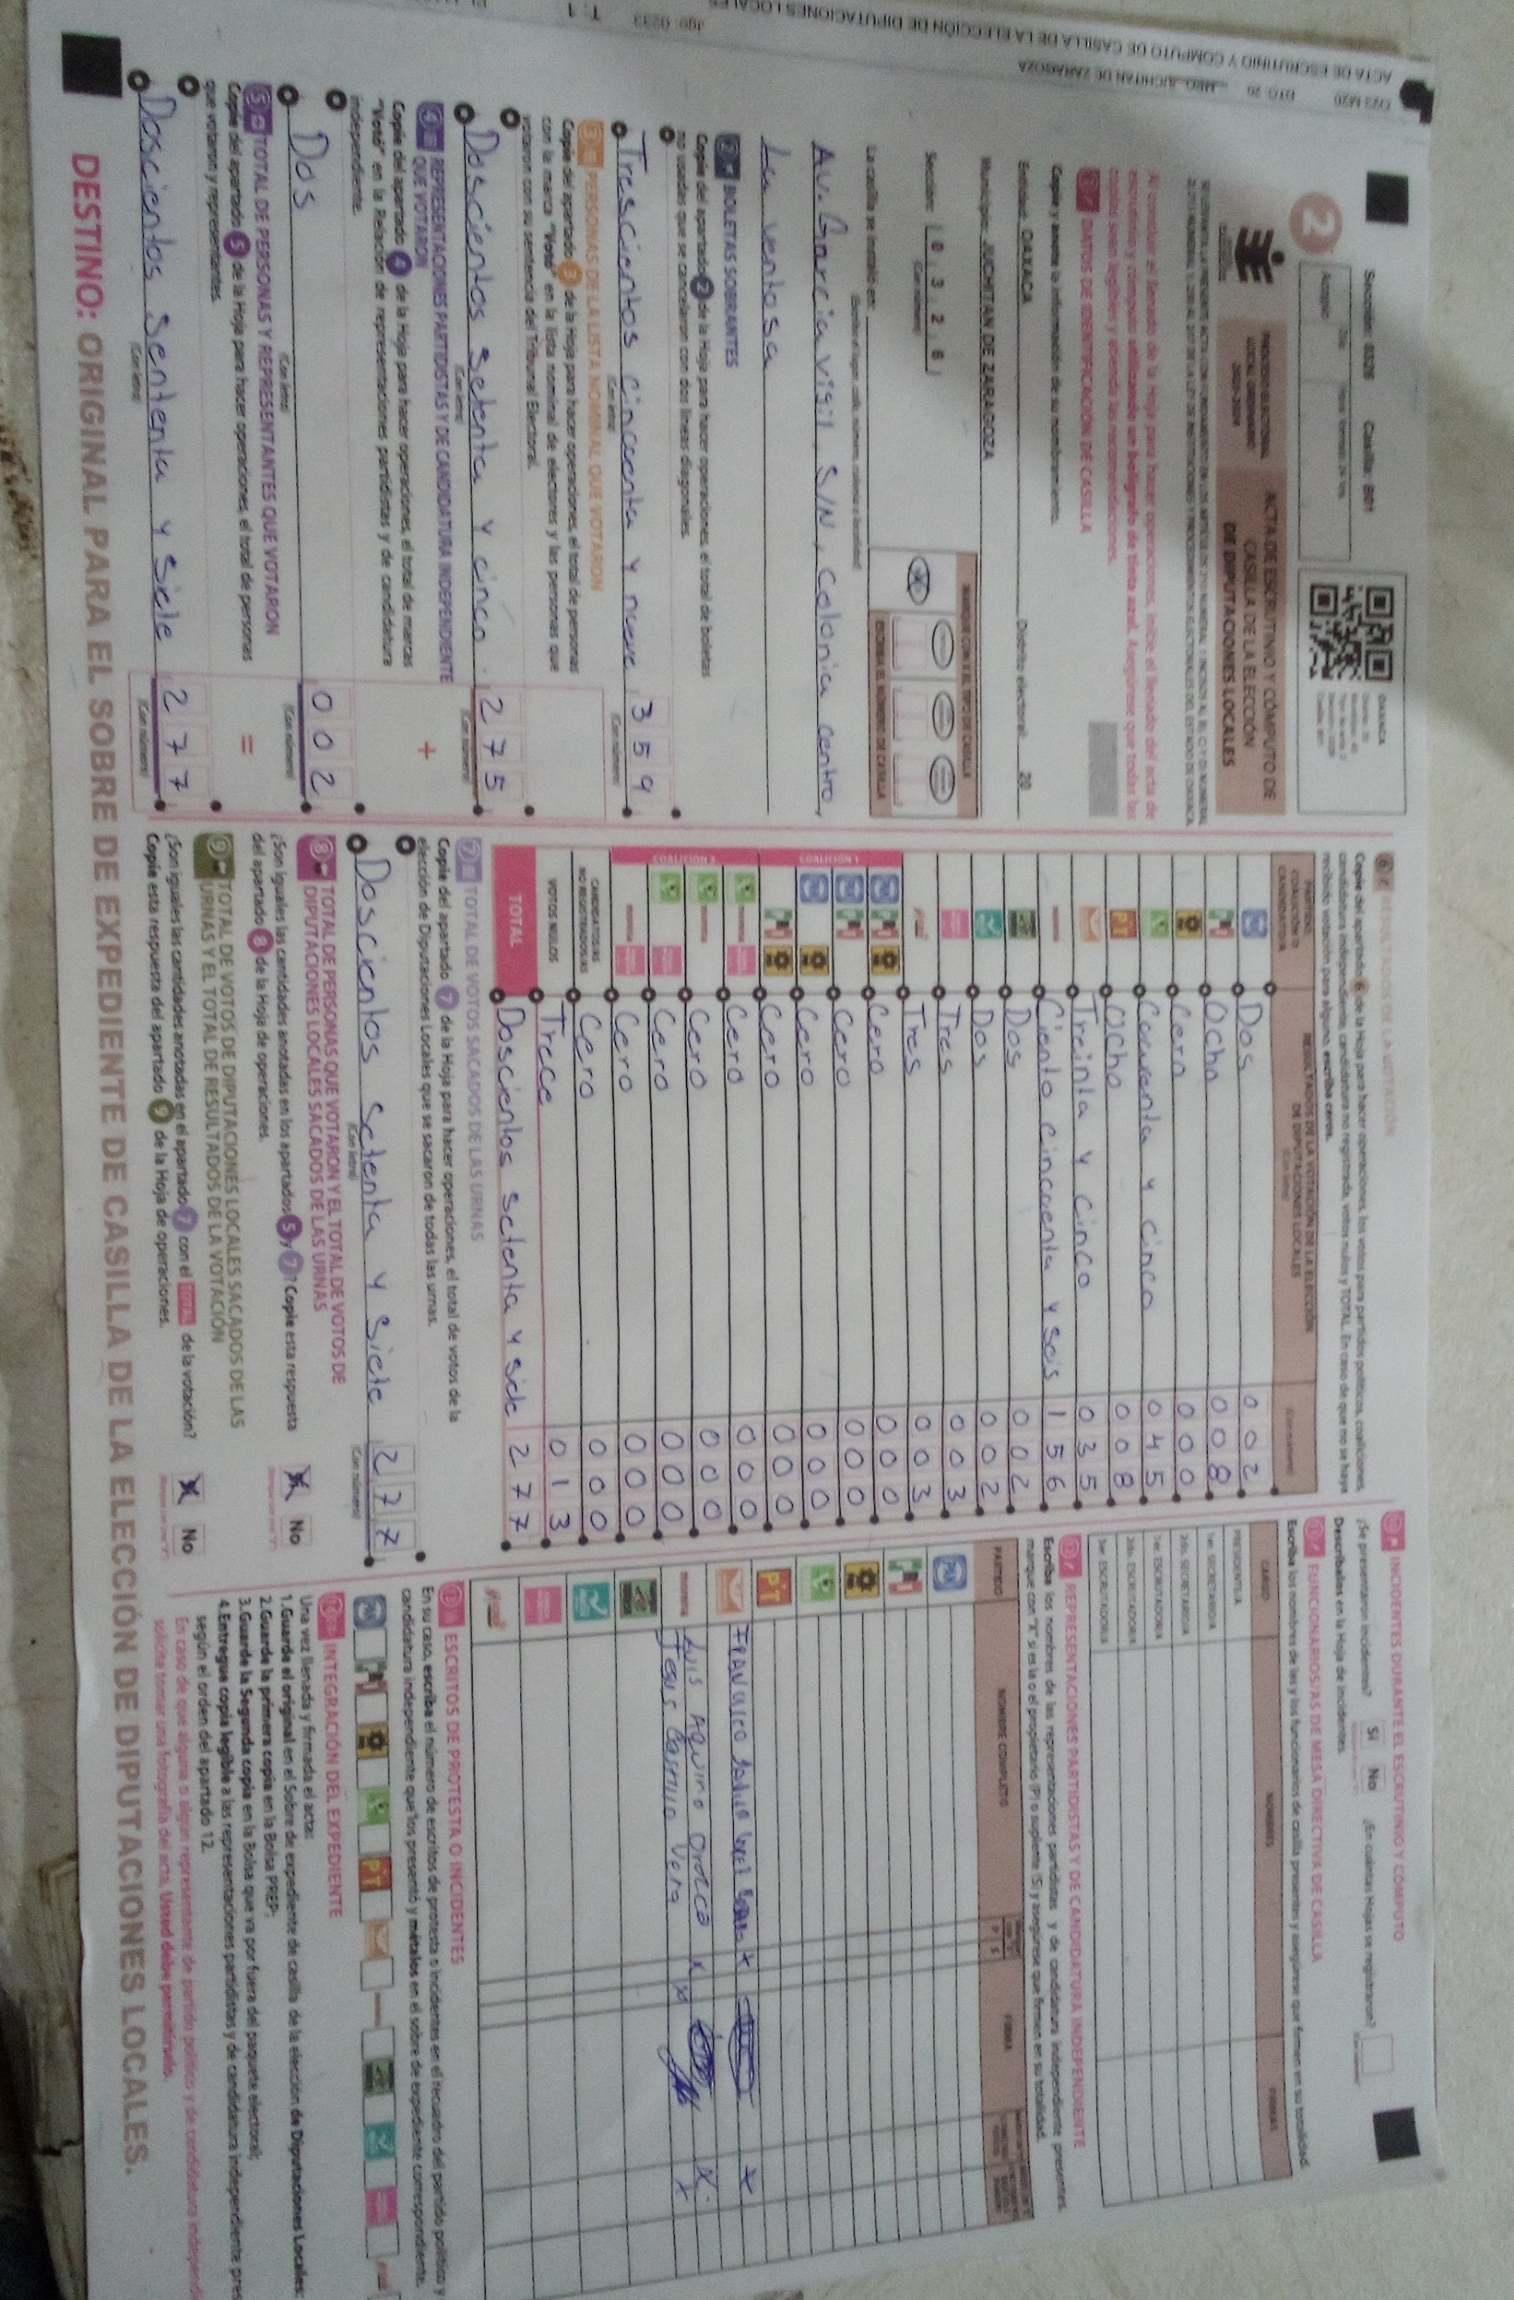 ACTA DE ESCRUTINIO Y CÓMPUTO DE CASILLA DE LA ELECCIÓN DE DIPUTACIONES LOCALES
D23 M20 DTO: 20 MPO: JUCHITAN DE ZARAGOZA
T: 1
2
Sección: 0326 Casilla: B01
OAXACA
PROCESO ELECTORAL
LOCAL ORDINARIO
2023-2024
ACTA DE ESCRUTINIO Y CÓMPUTO DE
CASILLA DE LA ELECCIÓN
DE DIPUTACIONES LOCALES
Al concluir el llenado de la Hoja para hacer operaciones, inicie el llenado del acta de
escrutinio y cómputo utilizando un bolígrafo de tinta azul. Asegúrese que todas las
copias sean legibles y atienda las recomendaciones.
1 DATOS DE IDENTIFICACIÓN DE CASILLA
Copie y anote la información de su nombramiento.
Entidad: OAXACA Distrito electoral: 20
Municipio: JUCHITAN DE ZARAGOZA
Sección: 0 3 2 6
(Con número)
MARQUE CON X EL TIPO DE CASILLA
ESCRIBA EL NÚMERO DE CASILLA
La casilla se instaló en:
Av. Garcia vigil S/N, Colonia centro,
La ventosa
2 BOLETAS SOBRANTES
Copie del apartado 2 de la Hoja para hacer operaciones, el total de boletas
no usadas que se cancelaron con dos líneas diagonales.
Trescientos cincuenta y nueve 3 5 9
(Con letra) (Con número)
3 PERSONAS DE LA LISTA NOMINAL QUE VOTARON
Copie del apartado 3 de la Hoja para hacer operaciones, el total de personas
con la marca "Votó" en la lista nominal de electores y las personas que
votaron con su sentencia del Tribunal Electoral.
Doscientos Setenta y cinco 2 7 5
(Con letra) (Con número)
4 REPRESENTACIONES PARTIDISTAS Y DE CANDIDATURA INDEPENDIENTE
QUE VOTARON
Copie del apartado 4 de la Hoja para hacer operaciones, el total de marcas
"Votó" en la Relación de representaciones partidistas y de candidatura
independiente.
+
Dos 0 0 2
(Con letra) (Con número)
5 TOTAL DE PERSONAS Y REPRESENTANTES QUE VOTARON
Copie del apartado 5 de la Hoja para hacer operaciones, el total de personas
que votaron y representantes.
=
Doscientos Sententa y Siete 2 7 7
(Con letra) (Con número)
6 RESULTADOS DE LA VOTACIÓN
Copie del apartado 6 de la Hoja para hacer operaciones, los votos para partidos políticos, coaliciones,
candidatura independiente, candidatura no registrada, votos nulos y TOTAL. En caso de que no se haya
recibido votación para alguno, escriba ceros.
PARTIDO, COALICIÓN O CANDIDATURA
RESULTADOS DE LA VOTACIÓN DE LA ELECCIÓN
DE DIPUTACIONES LOCALES
(Con letra)
(Con número)
Dos 0 0 2
Ocho 0 0 8
Cero 0 0 0
Cuarenta y cinco 0 4 5
PT Ocho 0 0 8
Treinta y Cinco 0 3 5
Ciento cincuenta y seis 1 5 6
Dos 0 0 2
Dos 0 0 2
Tres 0 0 3
Tres 0 0 3
COALICIÓN 1
Cero 0 0 0
Cero 0 0 0
Cero 0 0 0
Cero 0 0 0
COALICIÓN 2
Cero 0 0 0
Cero 0 0 0
Cero 0 0 0
Cero 0 0 0
CANDIDATOS/AS NO REGISTRADOS/AS Cero 0 0 0
VOTOS NULOS Trece 0 1 3
TOTAL Doscientos setenta y siete 2 7 7
7 TOTAL DE VOTOS SACADOS DE LAS URNAS
Copie del apartado 7 de la Hoja para hacer operaciones, el total de votos de la
elección de Diputaciones Locales que se sacaron de todas las urnas.
Doscientos Setenta y Siete 2 7 7
(Con letra) (Con número)
8 TOTAL DE PERSONAS QUE VOTARON Y EL TOTAL DE VOTOS DE
DIPUTACIONES LOCALES SACADOS DE LAS URNAS
¿Son iguales las cantidades anotadas en los apartados 5 y 7? Copie esta respuesta
del apartado 8 de la Hoja de operaciones.
No
9 TOTAL DE VOTOS DE DIPUTACIONES LOCALES SACADOS DE LAS
URNAS Y EL TOTAL DE RESULTADOS DE LA VOTACIÓN
¿Son iguales las cantidades anotadas en el apartado 7 con el TOTAL de la votación?
Copie esta respuesta del apartado 9 de la Hoja de operaciones.
No
10 INCIDENTES DURANTE EL ESCRUTINIO Y CÓMPUTO
¿Se presentaron incidentes? Sí No ¿En cuántas Hojas se registraron?
Descríbalos en la Hoja de incidentes.
11 FUNCIONARIOS/AS DE MESA DIRECTIVA DE CASILLA
Escriba los nombres de las y los funcionarios de casilla presentes y asegúrese que firmen en su totalidad.
CARGO NOMBRES FIRMAS
PRESIDENTE/A
1er. SECRETARIO/A
2do. SECRETARIO/A
1er. ESCRUTADOR/A
2do. ESCRUTADOR/A
3er. ESCRUTADOR/A
12 REPRESENTACIONES PARTIDISTAS Y DE CANDIDATURA INDEPENDIENTE
Escriba los nombres de las representaciones partidistas y de candidatura independiente presentes,
marque con "X" si es la o el propietario (P) o suplente (S) y asegúrese que firmen en su totalidad.
PARTIDO NOMBRE COMPLETO P S FIRMA
PT
Luis Aquino Orozco X X
Jesus Castillo Vera X X
13 ESCRITOS DE PROTESTA O INCIDENTES
En su caso, escriba el número de escritos de protesta o incidentes en el recuadro del partido político y
candidatura independiente que los presentó y métalos en el sobre de expediente correspondiente.
PT
14 INTEGRACIÓN DEL EXPEDIENTE
Una vez llenada y firmada el acta:
1.Guarde el original en el Sobre de expediente de casilla de la elección de Diputaciones Locales;
2.Guarde la primera copia en la Bolsa PREP;
3.Guarde la Segunda copia en la Bolsa que va por fuera del paquete electoral;
4.Entregue copia legible a las representaciones partidistas y de candidatura independiente pres
según el orden del apartado 12.
En caso de que alguna o algún representante de partido político y de candidatura independi
solicite tomar una fotografía del acta, Usted debe permitírselo.
DESTINO: ORIGINAL PARA EL SOBRE DE EXPEDIENTE DE CASILLA DE LA ELECCIÓN DE DIPUTACIONES LOCALES.